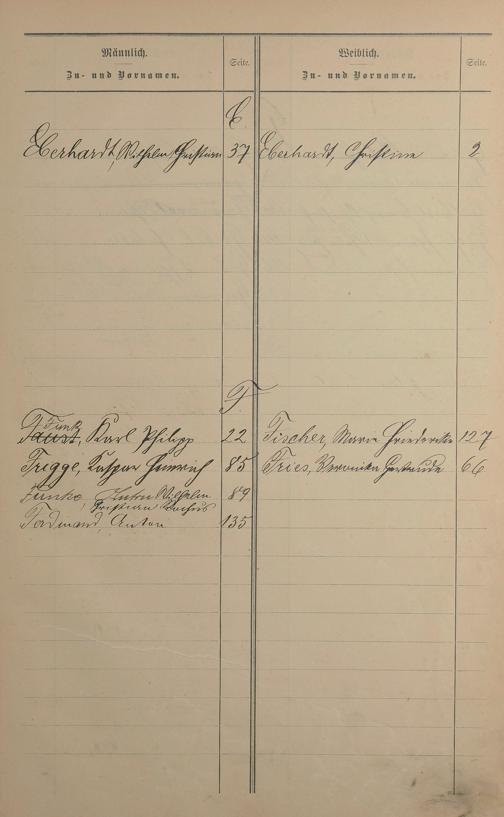 Männlich.
Zu- und Vornamen.
Seite.
Weiblich.
Zu- und Vornamen.
Seite.
E.
Eberhardt, Wilhelm Christian 37
Eberhardt, Christine 2
F
Funk
Faust, Karl Philipp 22
Fischer, Marie Friederike 127
Frigge, Kaspar Heinrich 85
Fries, Veronika Gertrude 66
Funke, Anton Wilhelm 89
Christian
Ferdinand, Anton 135